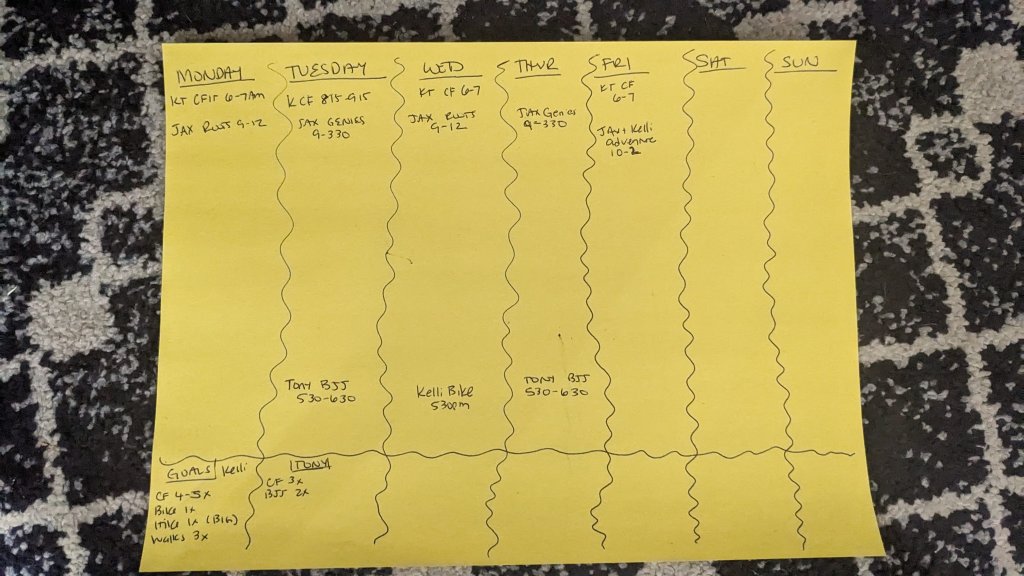 MONDAY
KT CFIT 6-7AM
JAX RUSS 9-12
TUESDAY
K CF 815-915
JAX GENIES
9-330
WED
KT CF 6-7
JAX RUSS
9-12
THUR
JAX Genies
9-330
FRI
KT CF
6-7
JAX + Kelli
adventure
10-2
SAT
SUN
TONY BJJ
530-630
Kelli Bike
530pm
TONY BJJ
530-630
GOALS Kelli
CF 4-5x
Bike 1x
Hike 1x (BIG)
Walks 3x
TONY
CF 3x
BJJ 2x